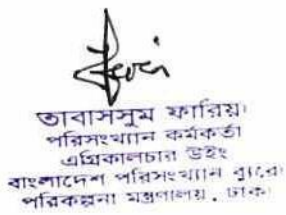 তাবাসসুম ফারিয়া
পরিসংখ্যান কর্মকর্তা
এগ্রিকালচার উইং
বাংলাদেশ পরিসংখ্যান ব্যুরো
পরিকল্পনা মন্ত্রণালয়, ঢাকা।